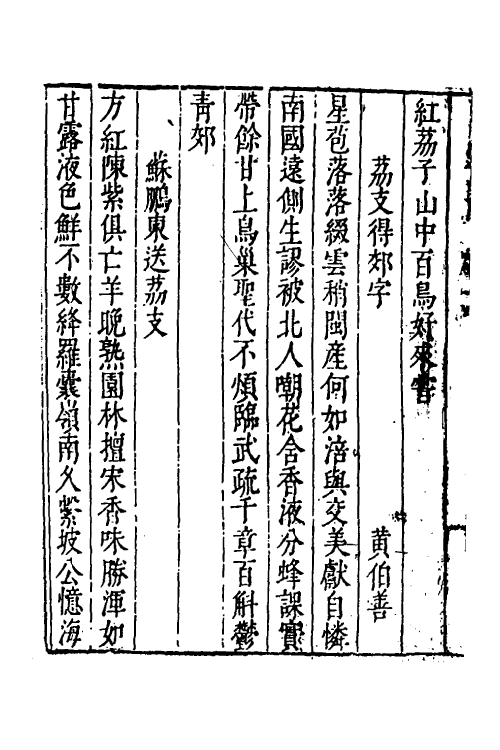 紅荔子山中百鳥好來嘗
荔支得郊字
黃伯善
星苞落落綴雲稍閩產何如涪與交美獻自憐
南國遠側生謬被北人嘲花含香液分蜂課實
帶餘甘上鳥巢聖代不煩臨武疏千章百斛鬱
青郊
蘇鵬東送荔支
方紅陳紫俱亡羊晚熟園林擅宋香味勝渾如
甘露液色鮮不數絳羅囊嶺南久縈坡公憶海